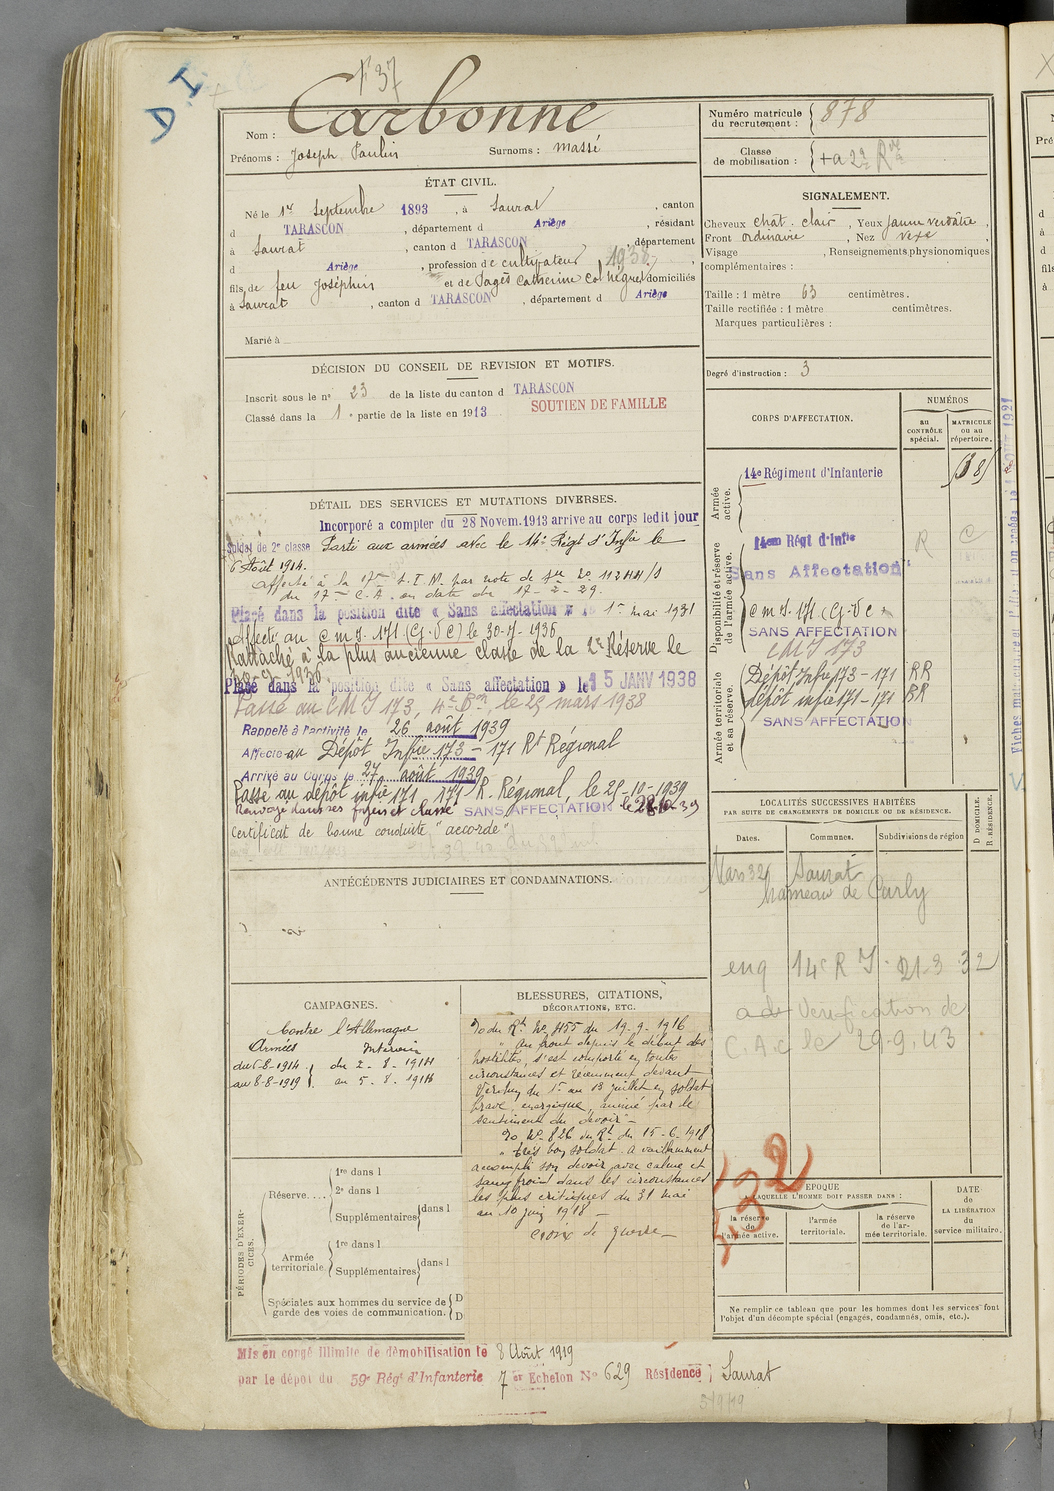 D I
F 37
Nom : Carbonne
Prénoms : Joseph Paulin Surnoms : Massé
Numéro matricule du recrutement : 878
Classe de mobilisation :
ÉTAT CIVIL.
Né le 1er Septembre 1893, à Saurat, canton
d TARASCON, département d Ariège, résidant
à Saurat, canton d TARASCON, département
d Ariège, profession de cultivateur 1938
fils de feu Joséphin et de Pagès Catherine domiciliés
à Saurat, canton d TARASCON, département d Ariège
Marié à
SIGNALEMENT.
Cheveux chat. clair, Yeux jaune verdâtre,
Front ordinaire, Nez vexe,
Visage , Renseignements physionomiques
complémentaires :
Taille : 1 mètre 63 centimètres.
Taille rectifiée : 1 mètre centimètres.
Marques particulières :
Degré d'instruction : 3
DÉCISION DU CONSEIL DE REVISION ET MOTIFS.
Inscrit sous le no 23 de la liste du canton d TARASCON
Classé dans la 1e partie de la liste en 1913 SOUTIEN DE FAMILLE
DÉTAIL DES SERVICES ET MUTATIONS DIVERSES.
Incorporé a compter du 28 Novem. 1913 arrive au corps ledit jour
Soldat de 2e classe Parti aux armées avec le 14e Régt d'Infie le
6 Août 1914.
Affecté à la 17e
du 17e C.A. en date du 17-2-29.
Placé dans la position dite « Sans affectation » le 1er mai 1931
Affecté au C M I 171 (G.V C) le 30-7-1936
Rattaché à la plus ancienne classe de la 2e Réserve le
Placé dans la position dite « Sans affectation » le 15 JANV 1938
Passé au C M I 173, le 25 mars 1938
Rappelé à l'activité le 26 août 1939
Affecté au Dépôt Infie 173 - 171 Rt Régional
Arrivé au Corps le 27 août 1939
Passé au dépôt infie 171 171 R. Régional, le 25-10-1939
Renvoyé dans ses foyers et classé SANS AFFECTATION le 28-10-39
Certificat de bonne conduite "accordé"
CORPS D'AFFECTATION.
NUMÉROS
au CONTRÔLE spécial.
MATRICULE ou au répertoire.
Armée active.
14e Régiment d'Infanterie
Disponibilité et réserve de l'armée active.
14eme Régt d'Infie
Sans Affectation
C m I. 171 (G.V C)
SANS AFFECTATION
CMI 173
Armée territoriale et sa réserve.
Dépôt Infie 173 - 171 RR
dépôt infie 171 - 171 RR
SANS AFFECTATION
LOCALITÉS SUCCESSIVES HABITÉES
PAR SUITE DE CHANGEMENTS DE DOMICILE OU DE RÉSIDENCE.
Dates. Communes. Subdivisions de région
D DOMICILE. R RÉSIDENCE.
Mars 32 Saurat
hameau de Carly
enq 14e R I. 21-3 32
Vérification de
C.A.C le 29.9.43
ANTÉCÉDENTS JUDICIAIRES ET CONDAMNATIONS.
CAMPAGNES.
Contre l'Allemagne
Armées Intérieur
du 6-8-1914 du 2-8-1914
au 8-8-1919 au 5-8-1914
BLESSURES, CITATIONS,
DÉCORATIONS, ETC.
O du Rt No 455 du 19-9-1916
" Au front depuis le début des
hostilités, s'est comporté en toutes
circonstances et récemment devant
Verdun du 1er au 13 juillet en soldat
brave, énergique, animé par le
sentiment du devoir" -
O No 826 du Rt du 15-6-1918
" Très bon soldat. A vaillamment
accompli son devoir avec calme et
sang froid dans les circonstances
les plus critiques du 31 mai
au 10 juin 1918 -
Croix de guerre -
PÉRIODES D'EXERCICES.
Réserve....
1re dans l
2e dans l
Supplémentaires dans l
Armée territoriale.
1re dans l
Supplémentaires dans l
Spéciales aux hommes du service de
garde des voies de communication.
D
D
232
EPOQUE
A LAQUELLE L'HOMME DOIT PASSER DANS :
la réserve de l'armée active.
l'armée territoriale.
la réserve de l'armée territoriale.
DATE de LA LIBÉRATION du service militaire.
Ne remplir ce tableau que pour les hommes dont les services font
l'objet d'un décompte spécial (engagés, condamnés, omis, etc.).
Mis en congé illimité de démobilisation le 8 Août 1919
par le dépôt du 59e Régt d'Infanterie 7 er Echelon No 629 Résidence Saurat